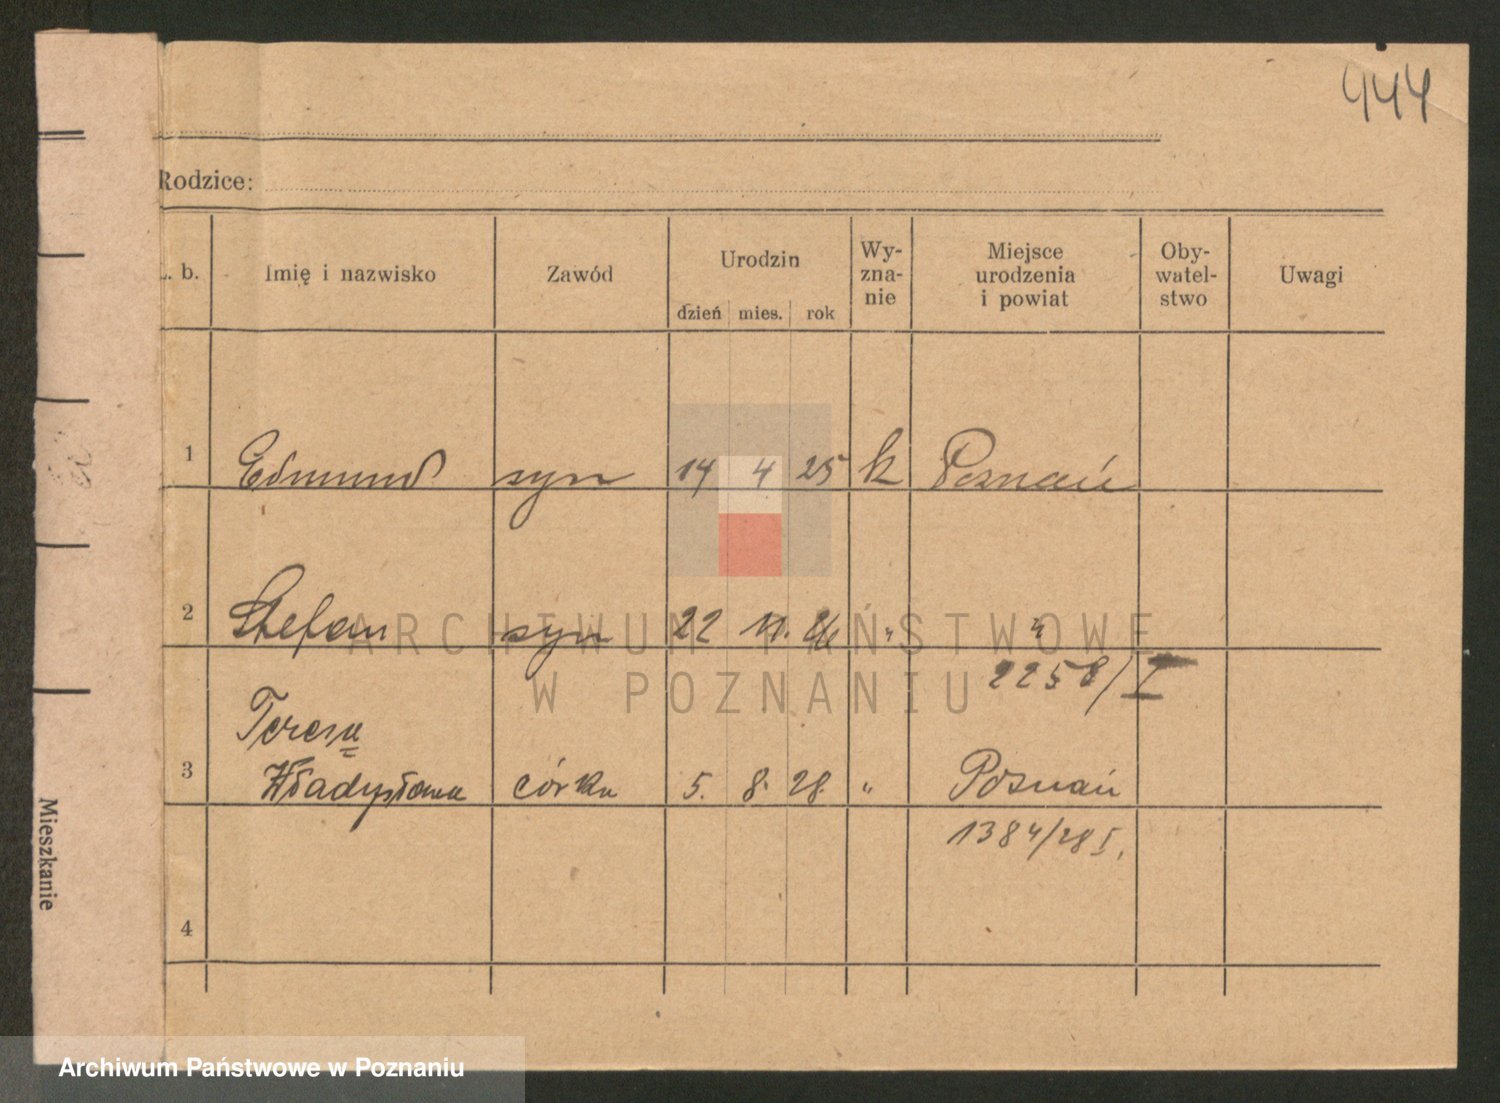 444
Rodzice:
L. b. Imię i nazwisko Zawód Urodzin dzień mies. rok Wy-zna-nie Miejsce urodzenia i powiat Oby-watel-stwo Uwagi
1 Edmund syn 14 4 25 k Poznań
2 Stefan syn 22 11. 26 " "
2258/I
Teresa
3 Władysława córka 5. 8. 28. " Poznań
1384/28 I.
4
Mieszkanie
ARCHIWUM PAŃSTWOWE
W POZNANIU
Archiwum Państwowe w Poznaniu